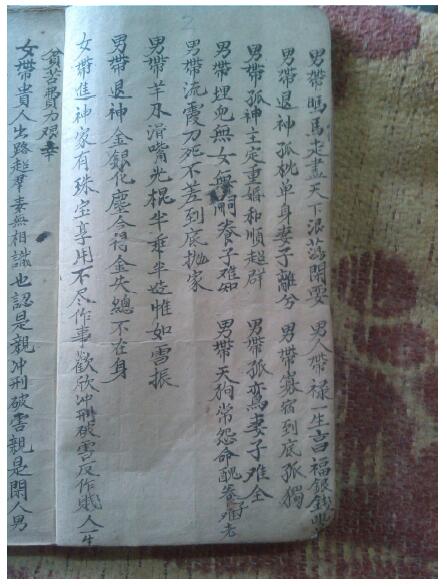 2
男帶馬走盡天下浪蕩閑耍 男人帶禄一生吉福銀錢
男帶退神孤枕单身妻子離分 男帶寡宿到底孤獨
男帶孤神主定重婚和順超群 男帶孤鸞妻子难全
男帶埋兒無女無嗣養子难 男帶天狗常怨命醜養子难老
男帶流霞刀死不差到底抛家
男帶羊刃滑嘴光棍半乖半 惟如雪振
男帶退神金銀化塵全得金失總不在身
女帶進神家有珠宝享用不尽作事歡欣冲刑破害反作贱人一生
貧苦費力艰辛
女帶貴人出路超羣素無相識也認是親冲刑破害親是閑人男